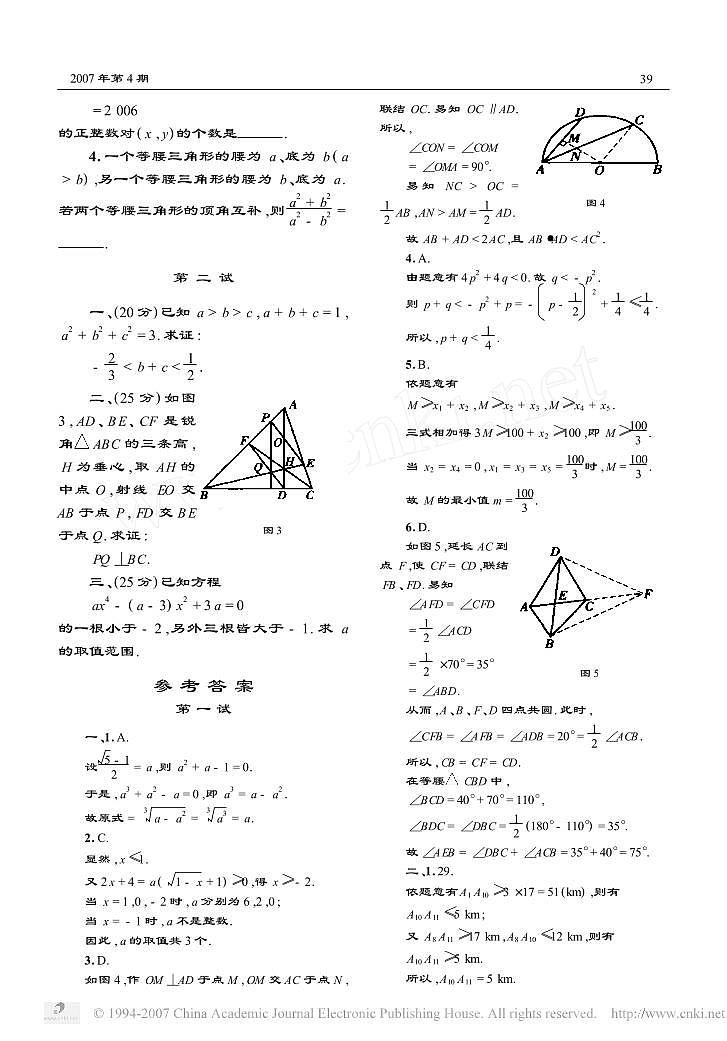 2007 年第 4 期
39
= 2 006
的正整数对( x , y)的个数是 .
4. 一个等腰三角形的腰为 a、底为 b( a
> b) ,另一个等腰三角形的腰为 b、底为 a.
若两个等腰三角形的顶角互补 ,则 (a² + b²)/(a² - b²) =
.
第 二 试
一、(20 分) 已知 a > b > c , a + b + c = 1 ,
a² + b² + c² = 3. 求证 :
- 2/3 < b + c < 1/2 .
二、(25 分) 如图
3 , AD、BE、CF 是锐
角△ABC 的三条高 ,
H 为垂心 ,取 AH 的
中点 O ,射线 EO 交
AB 于点 P , FD 交 BE
于点 Q. 求证 :
PQ ⊥BC.
A
P
F
O
H
E
Q
B
D
C
图 3
三、(25 分) 已知方程
ax⁴ - ( a - 3) x² + 3 a = 0
的一根小于 - 2 ,另外三根皆大于 - 1. 求 a
的取值范围.
参 考 答 案
第 一 试
一、1. A.
设 (√5 - 1)/2 = a ,则 a² + a - 1 = 0.
于是 , a³ + a² - a = 0 ,即 a³ = a - a² .
故原式 = ∛(a - a²) = ∛(a³) = a.
2. C.
显然 , x ≤1.
又 2 x + 4 = a ( √(1 - x) + 1) ≥0 ,得 x ≥- 2.
当 x = 1 ,0 , - 2 时 , a 分别为 6 ,2 ,0 ;
当 x = - 1 时 , a 不是整数.
因此 , a 的取值共 3 个.
3. D.
如图 4 ,作 OM ⊥AD 于点 M , OM 交 AC 于点 N ,
联结 OC. 易知 OC ∥AD.
所以 ,
∠CON = ∠COM
= ∠OMA = 90°.
易 知 NC > OC =
1/2 AB , AN > AM = 1/2 AD.
D
C
M
N
A
O
B
图 4
故 AB + AD < 2 AC ,且 AB •AD < AC² .
4. A.
由题意有 4 p² + 4 q < 0. 故 q < - p² .
则 p + q < - p² + p = - (p - 1/2)² + 1/4 ≤ 1/4 .
所以 , p + q < 1/4 .
5. B.
依题意有
M ≥x₁ + x₂ , M ≥x₂ + x₃ , M ≥x₄ + x₅ .
三式相加得 3 M ≥100 + x₂ ≥100 ,即 M ≥ 100/3 .
当 x₂ = x₄ = 0 , x₁ = x₃ = x₅ = 100/3 时 , M = 100/3 .
故 M 的最小值 m = 100/3 .
6. D.
如图 5 ,延长 AC 到
点 F ,使 CF = CD ,联结
FB、FD. 易知
∠AFD = ∠CFD
= 1/2 ∠ACD
= 1/2 ×70° = 35°
= ∠ABD.
D
E
F
A
C
B
图 5
从而 , A、B、F、D 四点共圆. 此时 ,
∠CFB = ∠AFB = ∠ADB = 20° = 1/2 ∠ACB.
所以 , CB = CF = CD.
在等腰△CBD 中 ,
∠BCD = 40° + 70° = 110° ,
∠BDC = ∠DBC = 1/2 (180° - 110°) = 35°.
故 ∠AEB = ∠DBC + ∠ACB = 35° + 40° = 75°.
二、1. 29.
依题意有 A₁ A₁₀ ≥3 ×17 = 51 (km) ,则有
A₁₀ A₁₁ ≤5 km ;
又 A₈ A₁₁ ≥17 km , A₈ A₁₀ ≤12 km ,则有
A₁₀ A₁₁ ≥5 km.
所以 , A₁₀ A₁₁ = 5 km.
© 1994-2007 China Academic Journal Electronic Publishing House. All rights reserved. http://www.cnki.net